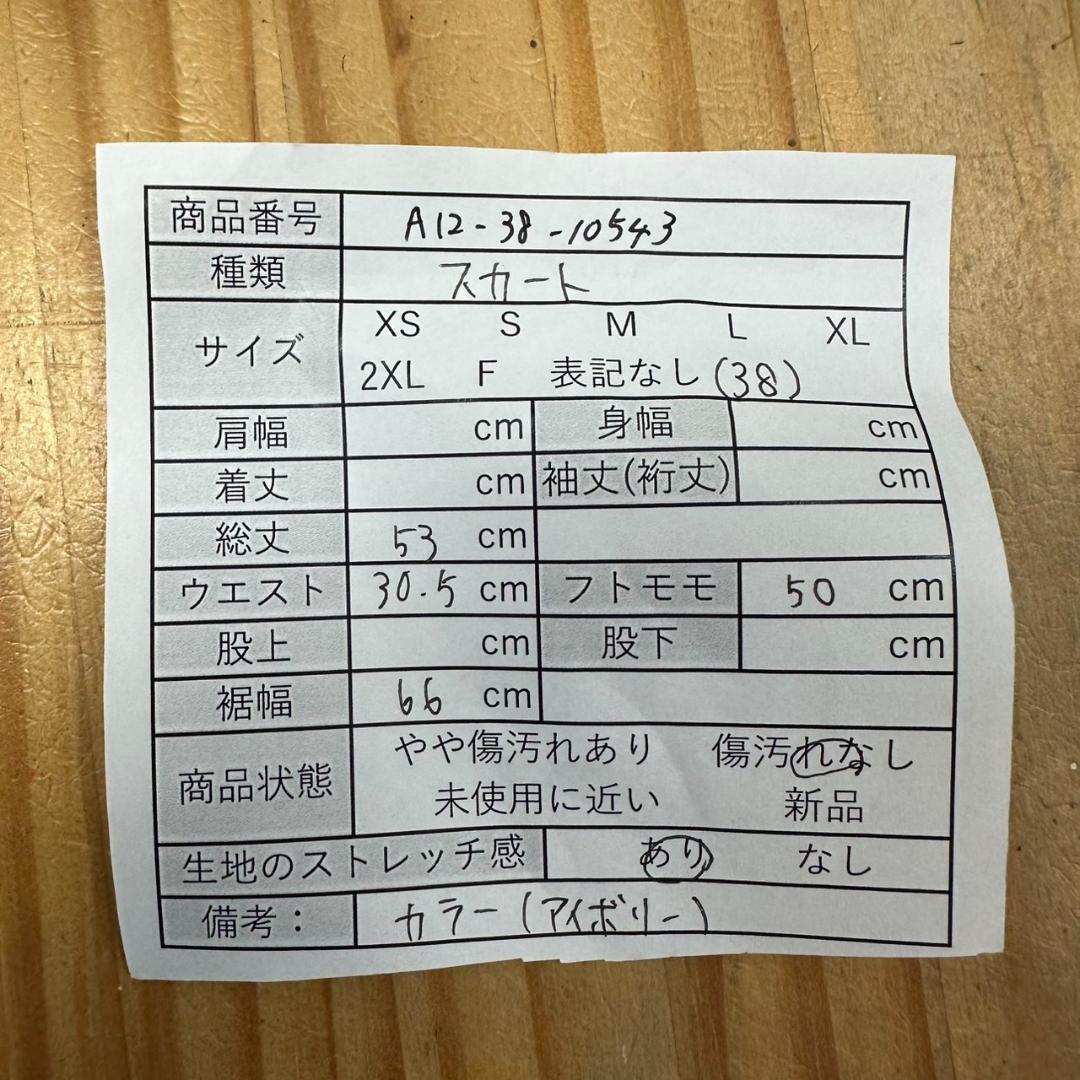 商品番号 A12-38-10543
種類 スカート
サイズ XS S M L XL
2XL F 表記なし (38)
肩幅 cm 身幅 cm
着丈 cm 袖丈(裄丈) cm
総丈 53 cm
ウエスト 30.5 cm フトモモ 50 cm
股上 cm 股下 cm
裾幅 66 cm
商品状態 やや傷汚れあり 傷汚れなし
未使用に近い 新品
生地のストレッチ感 あり なし
備考： カラー(アイボリー)